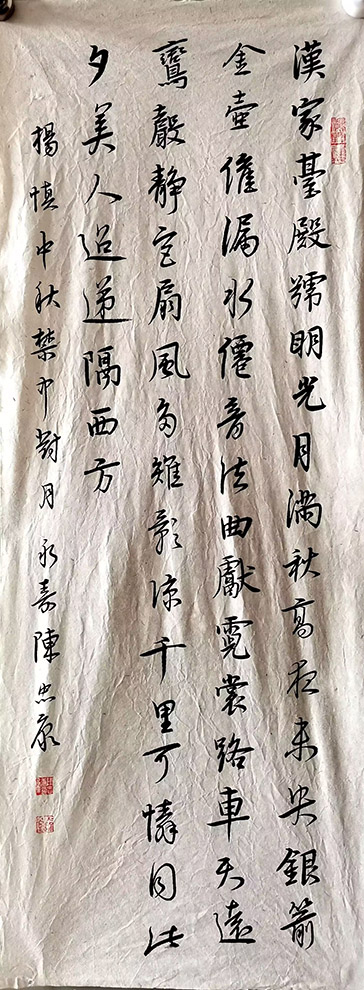 漢家臺殿號明光月滿秋高夜未央銀箭
金壺催漏水僊音法曲獻霓裳路車天遠
鸞聲靜宮扇風多雉影涼千里可憐同此
夕美人迢遞隔西方
楊慎中秋禁中對月 永嘉陳忠康